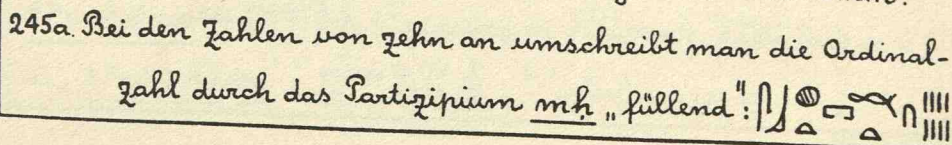 245a. Bei den Zahlen von zehn an umschreibt man die Ordinal-
zahl durch das Partizipium mḥ „füllend“: 𓋴𓃀𓐍𓏏𓉐𓎔𓏏𓎆𓐁